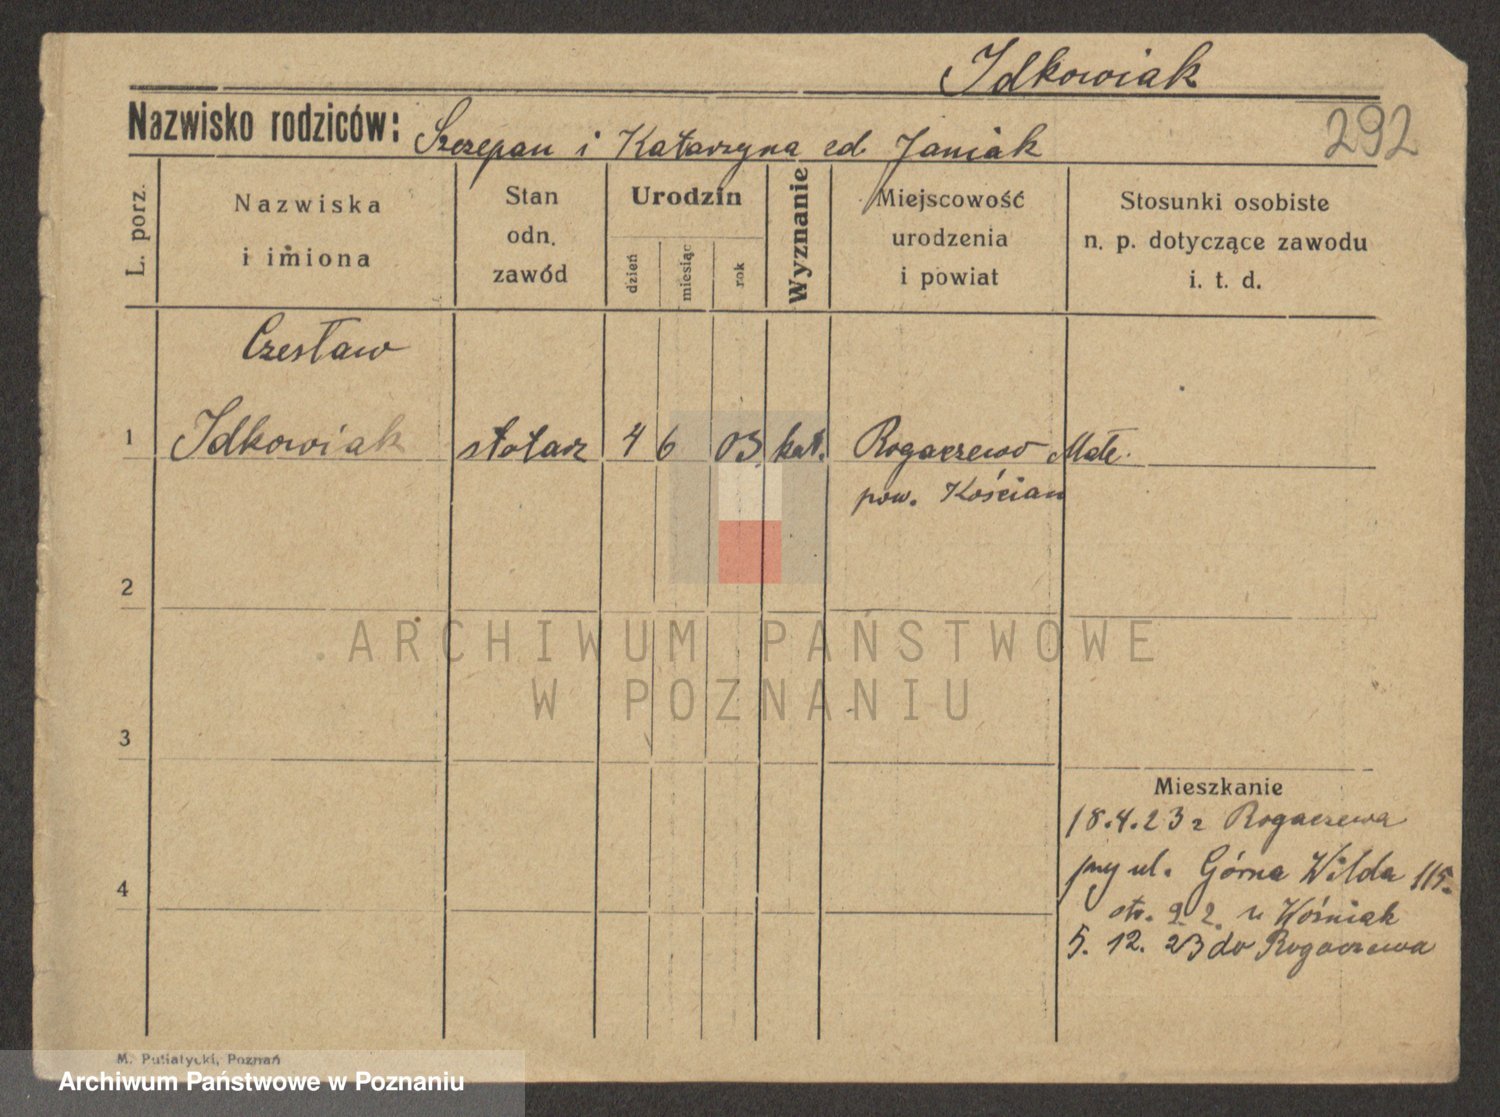 Idkowiak
Nazwisko rodziców: Szczepan i Katarzyna Janiak
292
L. porz.
Nazwiska
i imiona
Stan
odn.
zawód
Urodzin
dzień
miesiąc
rok
Wyznanie
Miejscowość
urodzenia
i powiat
Stosunki osobiste
n. p. dotyczące zawodu
i. t. d.
Czesław
1 Idkowiak stolarz 4 6 03 kat. Rogaczewo Małe.
pow. Kościan
2
ARCHIWUM PAŃSTWOWE
W POZNANIU
3
Mieszkanie
18.4.23 z Rogaczewa
przy ul. Górna Wilda 115.
u Woźniak
4
5. 12. 23 do Rogaczewa
M. Putiatycki, Poznań
Archiwum Państwowe w Poznaniu